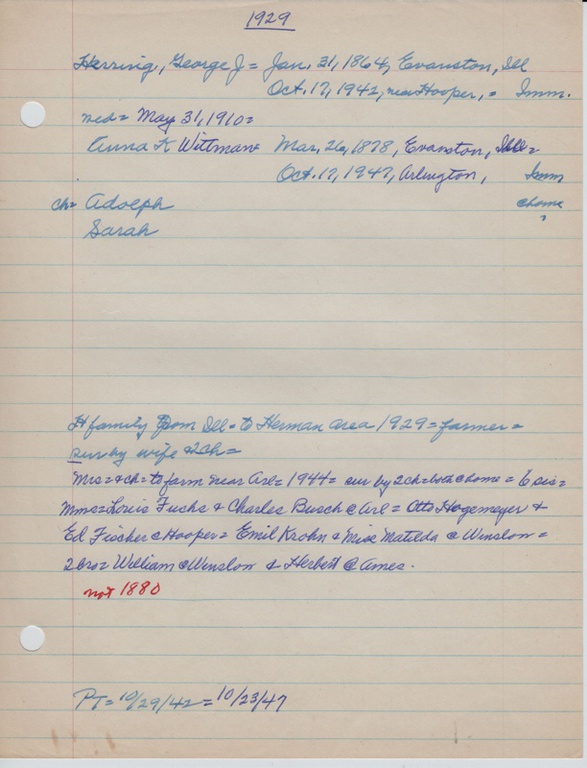 1929
Herring, George J = Jan. 31, 1864, Evanston, Ill
Oct. 17, 1942, near Hooper, = Imm.
med = May 31, 1910 =
Anna K Wittman = Mar. 26, 1878, Evanston, Ill =
Oct. 17, 1947, Arlington, Imm
ch = Adolph @home
Sarah
H family from Ill - to Herman area 1929 = farmer =
sur by wife & 2ch =
Mrs = & ch = to farm near Arl = 1944 = sur by 2ch = both @home = 6 sis =
Mmes = Louis Fuchs & Charles Busch @ Arl = Otto Hagemeyer &
Ed Fischer @ Hooper = Emil Krohn & Miss Matilda @ Winslow =
2 bro = William @ Winslow & Herbert @ Ames.
not 1880
PT = 10/29/42 = 10/23/47